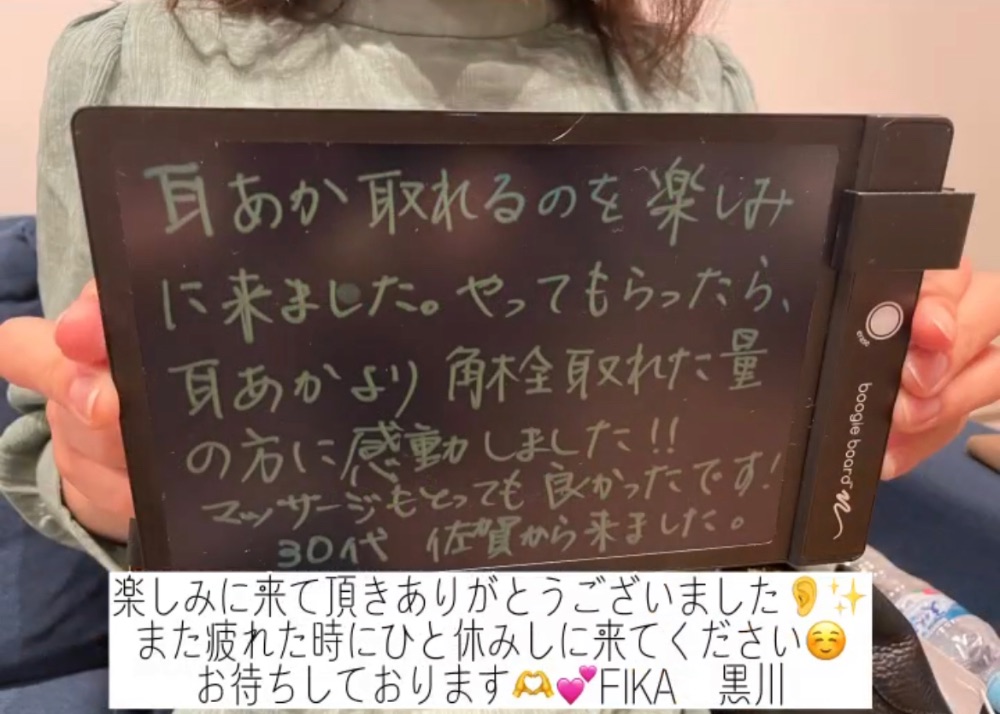 耳あか取れるのを楽しみ
に来ました。やってもらったら、
耳あかより角栓取れた量
の方に感動しました!!
マッサージもとっても良かったです!
30代 佐賀から来ました。
boogie board
楽しみに来て頂きありがとうございました👂✨
また疲れた時にひと休みしに来てください☺️
お待ちしております🫶💕FIKA 黒川